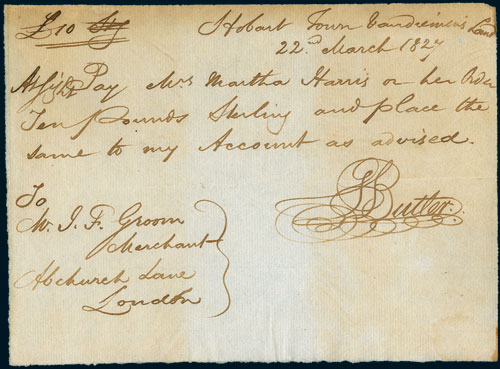 £10 Stg
Hobart Town Vandiemens Land
22nd March 1827
At sight Pay Mrs Martha Harris or her Order
Ten Pounds Sterling and place the
same to my Account as advised.
Butler.
To
Mr. J. F. Groom
Merchant
Abchurch Lane
London